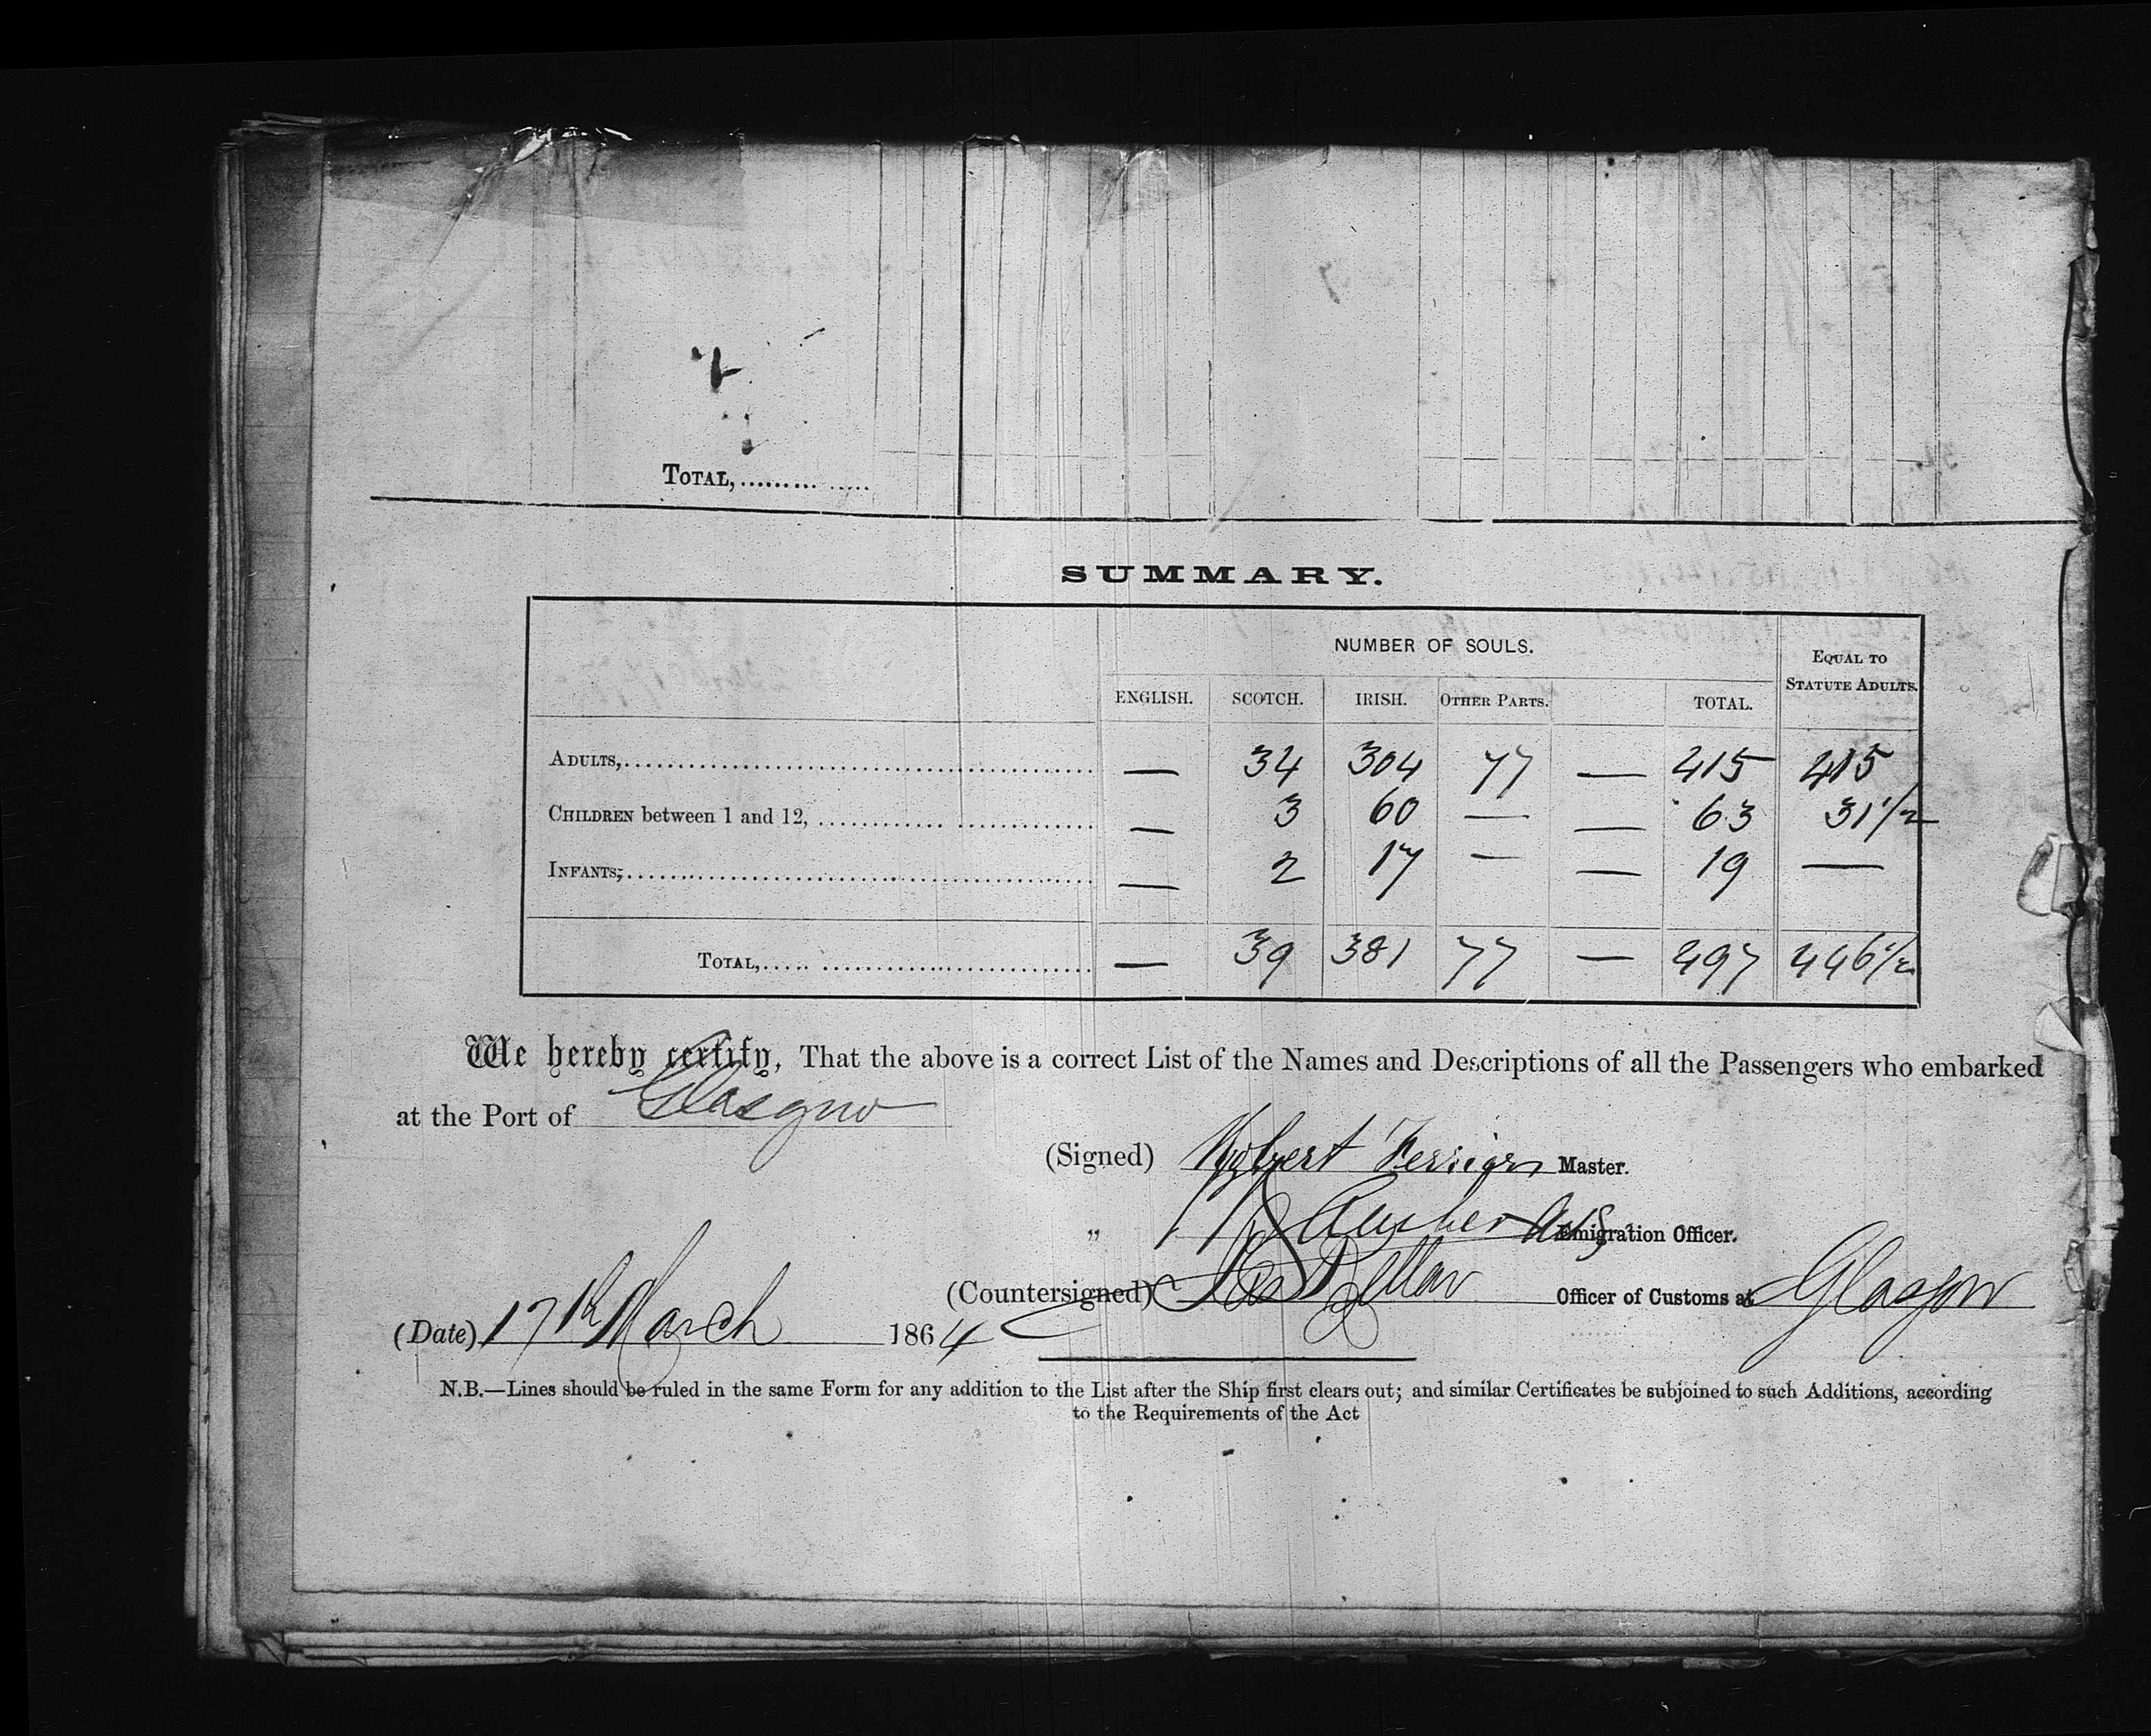 TOTAL,.............
SUMMARY.
NUMBER OF SOULS.
EQUAL TO
STATUTE ADULTS.
ENGLISH. SCOTCH. IRISH. OTHER PARTS. TOTAL.
ADULTS,............ — 34 304 77 — 415 415
CHILDREN between 1 and 12, ............ — 3 60 — — 63 31 1/2
INFANTS,............ — 2 17 — — 19 —
TOTAL,............ — 39 381 77 — 497 446 1/2
We hereby certify, That the above is a correct List of the Names and Descriptions of all the Passengers who embarked
at the Port of Glasgow
(Signed) Robert Master.
„ Emigration Officer.
(Countersigned) Officer of Customs at Glasgow
(Date) 17th March 1864
N.B.—Lines should be ruled in the same Form for any addition to the List after the Ship first clears out; and similar Certificates be subjoined to such Additions, according
to the Requirements of the Act